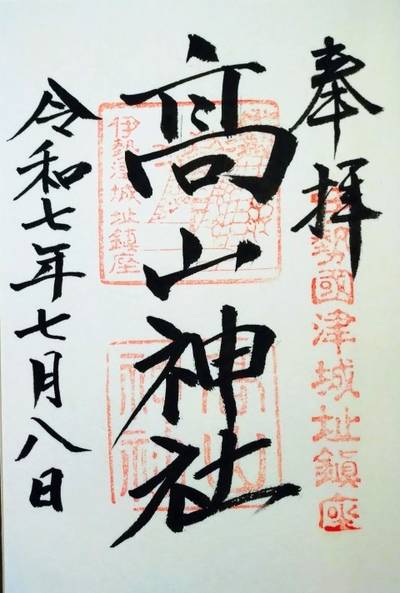 奉拝
伊勢國津城址鎮座
髙山神社
伊勢津城址鎮座
髙山神社
令和七年七月八日